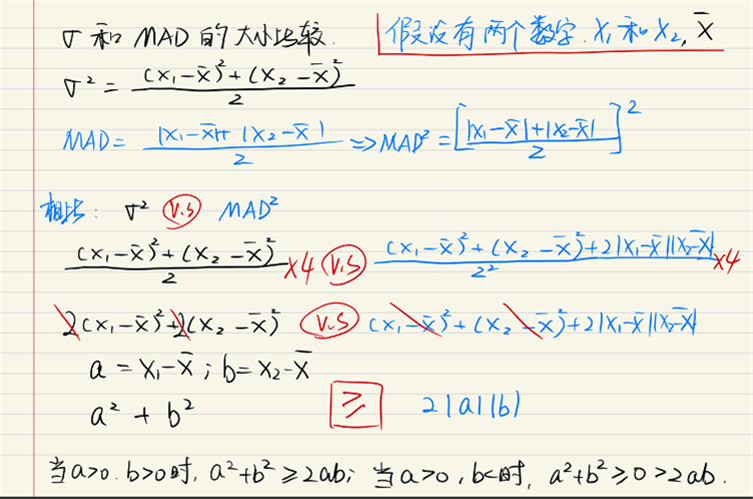 σ 和 MAD 的大小比较.
假设没有两个数字. X₁ 和 X₂, x̄
σ² = ((x₁-x̄)²+(x₂-x̄)²)/2
MAD = (|x₁-x̄|+|x₂-x̄|)/2 ⇒ MAD² = [(|x₁-x̄|+|x₂-x̄|)/2]²
相比: σ² V.S MAD²
((x₁-x̄)²+(x₂-x̄)²)/2 ×4 V.S ((x₁-x̄)²+(x₂-x̄)²+2|x₁-x̄||x₂-x̄|)/2² ×4
2(x₁-x̄)²+2(x₂-x̄)² V.S (x₁-x̄)²+(x₂-x̄)²+2|x₁-x̄||x₂-x̄|
a = x₁-x̄ ; b = x₂-x̄
a² + b² ≥ 2|a||b|
当a>0. b>0时, a²+b² ≥ 2ab; 当a>0, b<时, a²+b² ≥ 0 > 2ab.